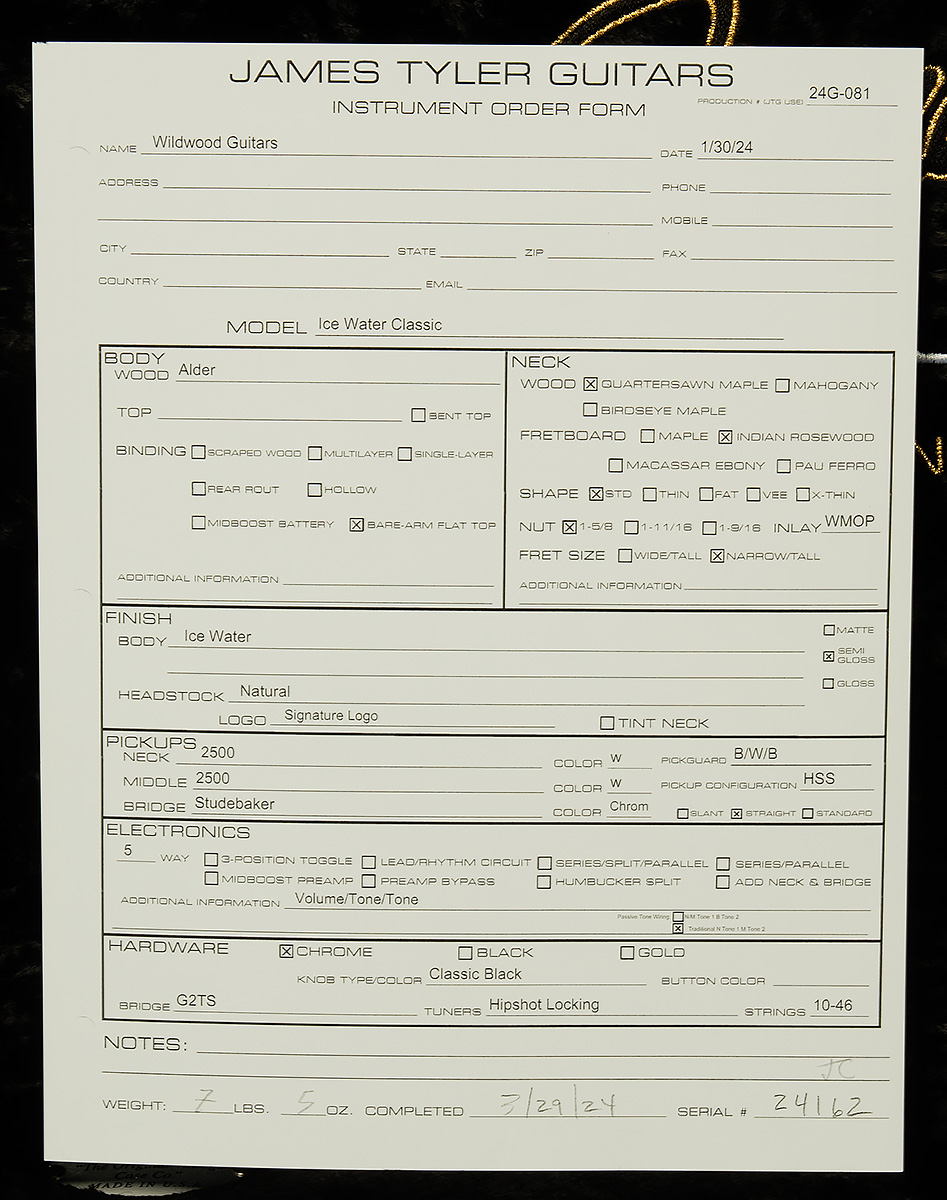 JAMES TYLER GUITARS
INSTRUMENT ORDER FORM PRODUCTION # (JTG USE) 24G-081
NAME Wildwood Guitars DATE 1/30/24
ADDRESS PHONE
MOBILE
CITY STATE ZIP FAX
COUNTRY EMAIL
MODEL Ice Water Classic
BODY
WOOD Alder
TOP BENT TOP
BINDING SCRAPED WOOD MULTILAYER SINGLE-LAYER
REAR ROUT HOLLOW
MIDBOOST BATTERY ☒ BARE-ARM FLAT TOP
ADDITIONAL INFORMATION
NECK
WOOD ☒ QUARTERSAWN MAPLE MAHOGANY
BIRDSEYE MAPLE
FRETBOARD MAPLE ☒ INDIAN ROSEWOOD
MACASSAR EBONY PAU FERRO
SHAPE ☒ STD THIN FAT VEE X-THIN
NUT ☒ 1-5/8 1-11/16 1-9/16 INLAY WMOP
FRET SIZE WIDE/TALL ☒ NARROW/TALL
ADDITIONAL INFORMATION
FINISH
BODY Ice Water
MATTE
☒ SEMI GLOSS
GLOSS
HEADSTOCK Natural
LOGO Signature Logo TINT NECK
PICKUPS
NECK 2500 COLOR W PICKGUARD B/W/B
MIDDLE 2500 COLOR W PICKUP CONFIGURATION HSS
BRIDGE Studebaker COLOR Chrom SLANT ☒ STRAIGHT STANDARD
ELECTRONICS
5 WAY 3-POSITION TOGGLE LEAD/RHYTHM CIRCUIT SERIES/SPLIT/PARALLEL SERIES/PARALLEL
MIDBOOST PREAMP PREAMP BYPASS HUMBUCKER SPLIT ADD NECK & BRIDGE
ADDITIONAL INFORMATION Volume/Tone/Tone
Passive Tone Wiring N/M Tone 1 B Tone 2
☒ Traditional N Tone 1 M Tone 2
HARDWARE ☒ CHROME BLACK GOLD
KNOB TYPE/COLOR Classic Black BUTTON COLOR
BRIDGE G2TS TUNERS Hipshot Locking STRINGS 10-46
NOTES:
JC
WEIGHT: 7 LBS. 5 OZ. COMPLETED 3/29/24 SERIAL # 24162
"The Origin
Case Co.
MADE IN U.S.